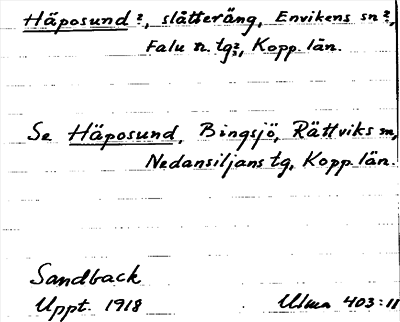 Häposund ?, slåtteräng, Envikens sn ?,
Falu n. tg ?, Kopp. län.
Se Häposund, Bingsjö, Rättviks sn,
Nedansiljans tg, Kopp. län.
Sandback
Uppt. 1918 Ulma 403:11